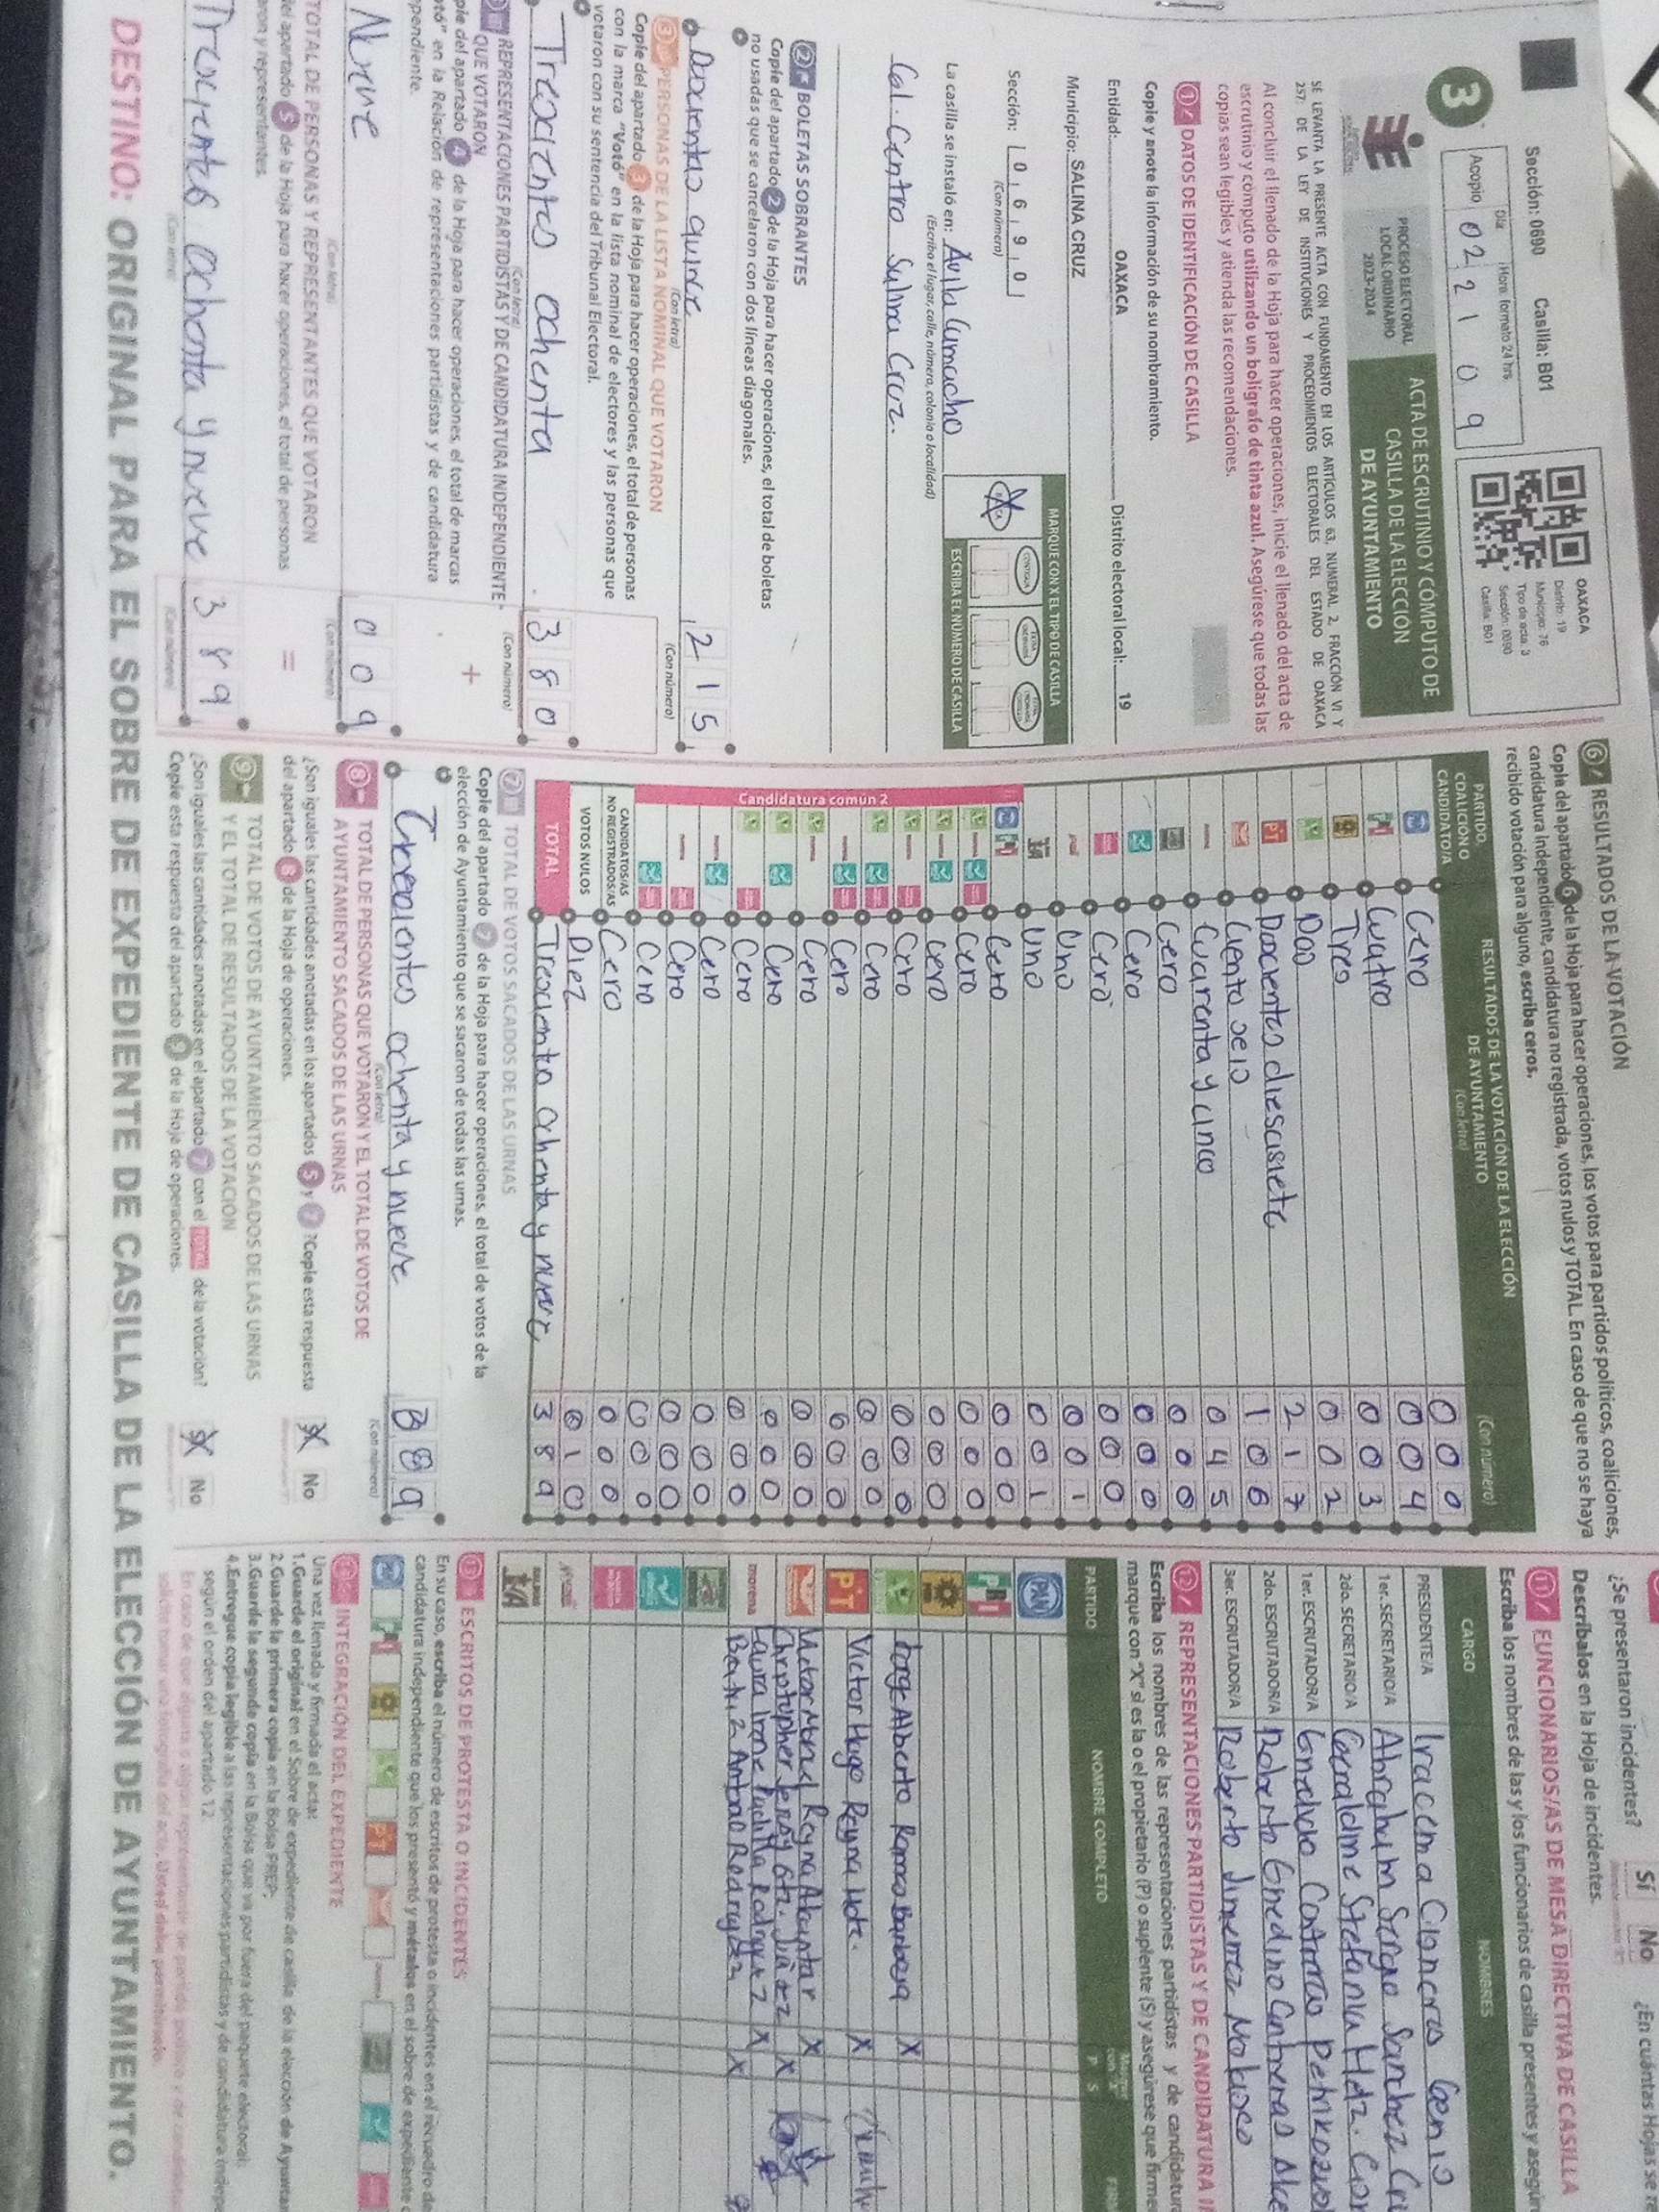 Sección: 0690 Casilla: B01
Día
Hora, formato 24 hrs
Acopio 02 21 09
3
PROCESO ELECTORAL
LOCAL ORDINARIO
2023-2024
ACTA DE ESCRUTINIO Y CÓMPUTO DE
CASILLA DE LA ELECCIÓN
DE AYUNTAMIENTO
OAXACA
Distrito: 19
Municipio: 76
Tipo de acta: 3
Sección: 0690
Casilla: B01
SE LEVANTA LA PRESENTE ACTA CON FUNDAMENTO EN LOS ARTÍCULOS 63, NUMERAL 2, FRACCIÓN VI Y
257, DE LA LEY DE INSTITUCIONES Y PROCEDIMIENTOS ELECTORALES DEL ESTADO DE OAXACA
Al concluir el llenado de la Hoja para hacer operaciones, inicie el llenado del acta de
escrutinio y cómputo utilizando un bolígrafo de tinta azul. Asegúrese que todas las
copias sean legibles y atienda las recomendaciones.
1 DATOS DE IDENTIFICACIÓN DE CASILLA
Copie y anote la información de su nombramiento.
Entidad: OAXACA Distrito electoral local: 19
Municipio: SALINA CRUZ
Sección: 0 6 9 0
(Con número)
MARQUE CON X EL TIPO DE CASILLA
ESCRIBA EL NÚMERO DE CASILLA
La casilla se instaló en: Avila Camacho
(Escriba el lugar, calle, número, colonia o localidad)
Col. Centro Salina Cruz.
2 BOLETAS SOBRANTES
Copie del apartado 2 de la Hoja para hacer operaciones, el total de boletas
no usadas que se cancelaron con dos líneas diagonales.
Doscientas quince 2 1 5
(Con letra) (Con número)
3 PERSONAS DE LA LISTA NOMINAL QUE VOTARON
Copie del apartado 3 de la Hoja para hacer operaciones, el total de personas
con la marca "Votó" en la lista nominal de electores y las personas que
votaron con su sentencia del Tribunal Electoral.
Trescientos ochenta 3 8 0
(Con letra) (Con número)
REPRESENTACIONES PARTIDISTAS Y DE CANDIDATURA INDEPENDIENTE
QUE VOTARON
+
del apartado 4 de la Hoja para hacer operaciones, el total de marcas
en la Relación de representaciones partidistas y de candidatura
Nueve 0 0 9
(Con letra) (Con número)
TOTAL DE PERSONAS Y REPRESENTANTES QUE VOTARON
=
del apartado 5 de la Hoja para hacer operaciones, el total de personas
y representantes.
Trescientos ochenta y nueve 3 8 9
(Con letra) (Con número)
6 RESULTADOS DE LA VOTACIÓN
Copie del apartado 6 de la Hoja para hacer operaciones, los votos para partidos políticos, coaliciones,
candidatura independiente, candidatura no registrada, votos nulos y TOTAL. En caso de que no se haya
recibido votación para alguno, escriba ceros.
PARTIDO,
COALICIÓN O
CANDIDATO/A
RESULTADOS DE LA VOTACIÓN DE LA ELECCIÓN
DE AYUNTAMIENTO
(Con letra)
(Con número)
Cero 0 0 0
Cuatro 0 0 4
Tres 0 0 3
Dos 0 0 2
Doscientos diescisiete 2 1 7
Ciento seis 1 0 6
Cuarenta y cinco 0 4 5
Cero 0 0 0
Cero 0 0 0
Cero 0 0 0
Uno 0 0 1
Uno 0 0 1
Candidatura común 2
Cero 0 0 0
Cero 0 0 0
Cero 0 0 0
Cero 0 0 0
Cero 0 0 0
Cero 0 0 0
Cero 0 0 0
Cero 0 0 0
Cero 0 0 0
Cero 0 0 0
Cero 0 0 0
Cero 0 0 0
CANDIDATOS/AS
NO REGISTRADOS/AS Cero 0 0 0
VOTOS NULOS Diez 0 1 0
TOTAL Trescientos ochenta y nueve 3 8 9
7 TOTAL DE VOTOS SACADOS DE LAS URNAS
Copie del apartado 7 de la Hoja para hacer operaciones, el total de votos de la
elección de Ayuntamiento que se sacaron de todas las urnas.
Trescientos ochenta y nueve 3 8 9
(Con letra) (Con número)
8 TOTAL DE PERSONAS QUE VOTARON Y EL TOTAL DE VOTOS DE
AYUNTAMIENTO SACADOS DE LAS URNAS
¿Son iguales las cantidades anotadas en los apartados 5 y 7? Copie esta respuesta
del apartado 8 de la Hoja de operaciones.
No
9 TOTAL DE VOTOS DE AYUNTAMIENTO SACADOS DE LAS URNAS
Y EL TOTAL DE RESULTADOS DE LA VOTACIÓN
¿Son iguales las cantidades anotadas en el apartado 7 con el TOTAL de la votación?
Copie esta respuesta del apartado 9 de la Hoja de operaciones.
No
¿Se presentaron incidentes? Sí No ¿En cuántas Hojas se
Descríbalos en la Hoja de incidentes.
11 FUNCIONARIOS/AS DE MESA DIRECTIVA DE CASILLA
Escriba los nombres de las y los funcionarios de casilla presentes y
CARGO NOMBRES
PRESIDENTE/A
1er. SECRETARIO/A Abraham Sanchez
2do. SECRETARIO/A
1er. ESCRUTADOR/A
2do. ESCRUTADOR/A Roberto
3er. ESCRUTADOR/A Roberto Jimenez
12 REPRESENTACIONES PARTIDISTAS Y DE CANDIDATURA
Escriba los nombres de las representaciones partidistas y de candidatura
marque con "X" si es la o el propietario (P) o suplente (S) y asegúrese que firmen
PARTIDO NOMBRE COMPLETO P S
PAN
PRI
PRD
Jorge Alberto Ramos Barbosa X
PT Victor Hugo Reyna Hdte. X
Reyna X
X
morena Laura Irene Padilla Rodriguez X
Rodriguez X
13 ESCRITOS DE PROTESTA O INCIDENTES
En su caso, escriba el número de escritos de protesta o incidentes en el recuadro
candidatura independiente que los presentó y métalos en el sobre de expediente
INTEGRACIÓN DEL EXPEDIENTE
Una vez llenada y firmada el acta:
1.Guarde el original en el Sobre de expediente de casilla de la elección de
2.Guarde la primera copia en la Bolsa PREP;
3.Guarde la segunda copia en la Bolsa que va por fuera del paquete electoral;
4.Entregue copia legible a las representaciones partidistas y de candidatura
según el orden del apartado 12.
DESTINO: ORIGINAL PARA EL SOBRE DE EXPEDIENTE DE CASILLA DE LA ELECCIÓN DE AYUNTAMIENTO.